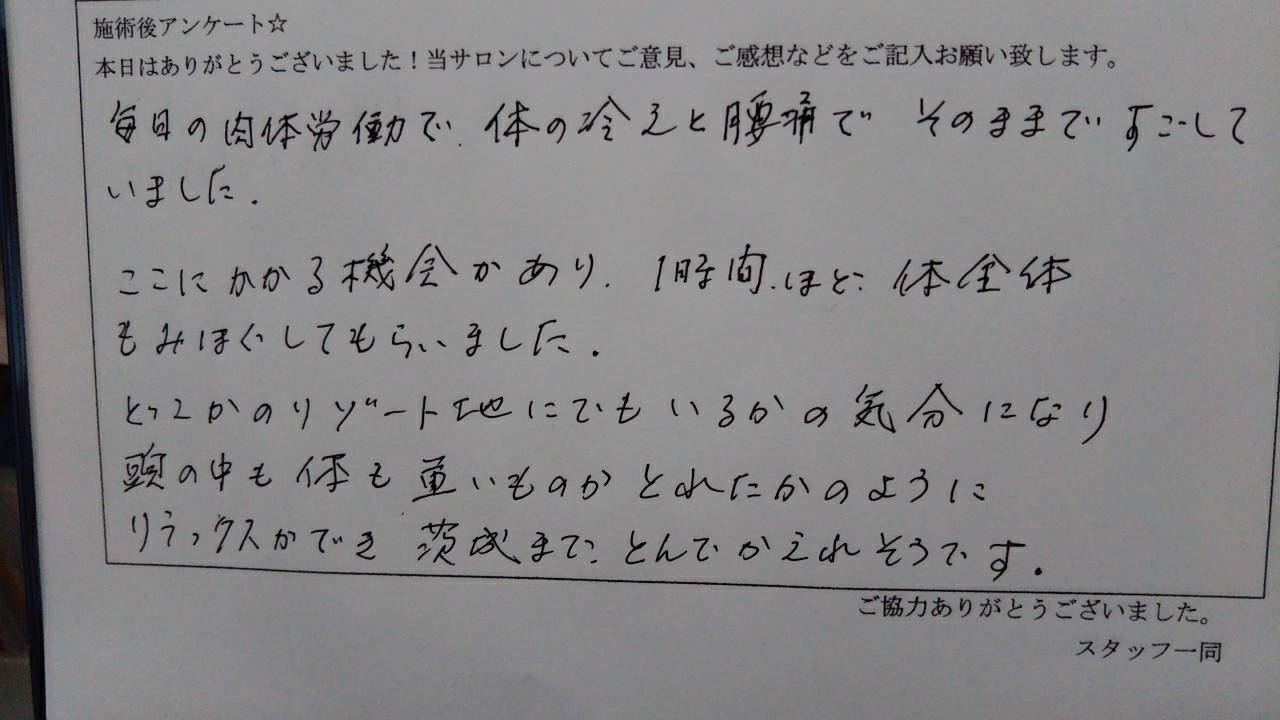 施術後アンケート☆
本日はありがとうございました！当サロンについてご意見、ご感想などをご記入お願い致します。
毎日の肉体労働で、体の冷えと腰痛で そのままですごして
いました.
ここにかかる機会があり、1時間ほど 体全体
もみほぐしてもらいました.
どこかのリゾート地にでもいるかの気分になり
頭の中も体も重いものがとれたかのように
リラックスができ 茨城まで とんでかえれそうです.
ご協力ありがとうございました。
スタッフ一同